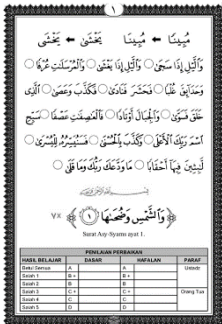 ١
مُبِينًا ← مُبِينَا يَخْشَى ← يَخْشَى
وَالَّيْلِ إِذَا سَجَى وَالَّيْلِ إِذَا يَغْشَى وَالْمُرْسَلَاتِ عُرْفًا
وَحَدَائِقَ غُلْبًا فَحَشَرَ فَنَادَى فَكَذَّبَ وَعَصَى الَّذِي
خَلَقَ فَسَوَّى وَالْجِبَالَ أَوْتَادًا فَالْعَصِفَتِ عَصْفًا سَبِّحِ
اسْمَ رَبِّكَ الْأَعْلَى وَكَذَّبَ بِالْحُسْنَى فَسَنُيَسِّرُهُ لِلْيُسْرَى
لَبِثِينَ فِيهَا أَحْقَابًا مَا وَدَّعَكَ رَبُّكَ وَمَا قَلَى
وَالشَّمْسِ وَضُحَىهَا ١ ٧x
Surat Asy-Syams ayat 1.
PENILAIAN PERBAIKAN
HASIL BELAJAR DASAR HAFALAN PARAF
Betul Semua A A Ustadz
Salah 1 B+ B+
Salah 2 B B
Salah 3 C+ C+ Orang Tua
Salah 4 C C
Salah 5 D D